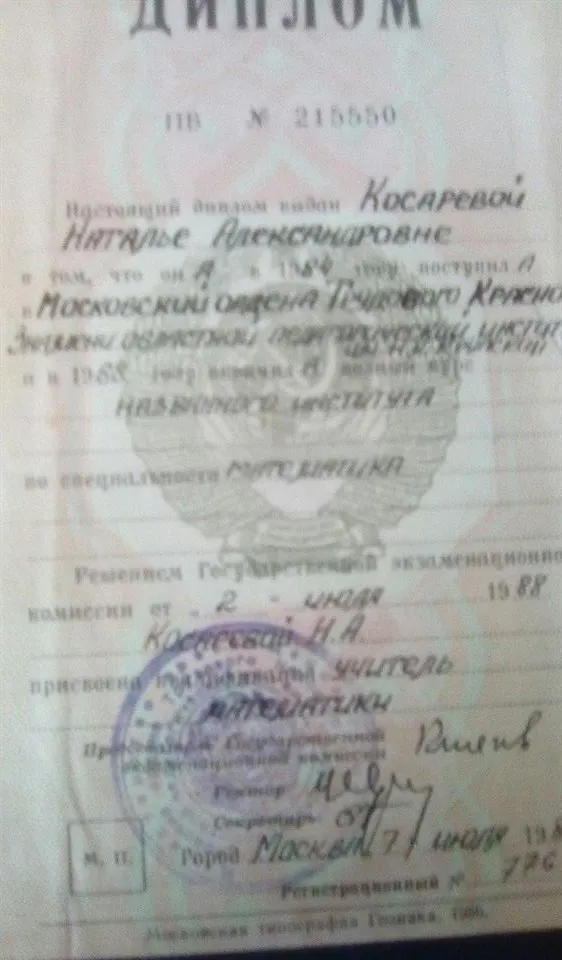 ДИПЛОМ
ПВ № 215550
Настоящий диплом выдан Косаревой
Наталье Александровне
в том, что он А в 1984 году поступил А
в Московский ордена Трудового Красно
Знамени областной педагогический инст
им. Н.К. Крупской
и в 1988 году окончил А полный курс
названного института
по специальности математика
Решением Государственной экзаменационной
комиссии от „2 - июля 1988
Косаревой Н.А.
присвоена квалификация учитель
математики
Председатель Государственной
экзаменационной комиссии
Ректор
Секретарь
М. П. Город Москва 7 июля 198
Регистрационный № 776
Московская типография Гознака. 1986.